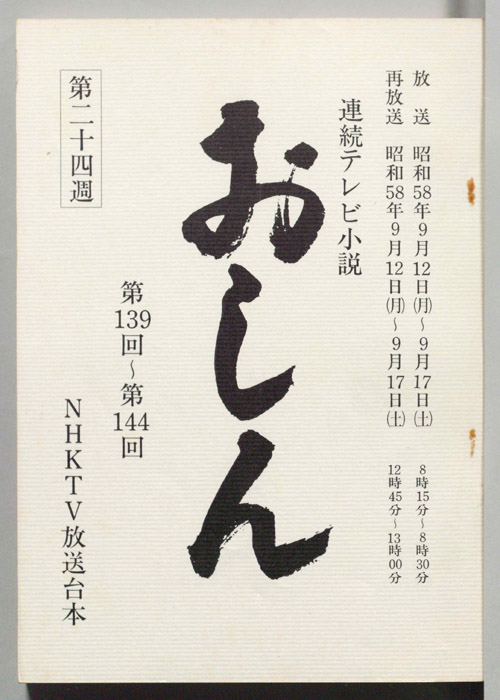 放送 昭和58年9月12日(月)～9月17日(土) 8時15分～8時30分
再放送 昭和58年9月12日(月)～9月17日(土) 12時45分～13時00分
連続テレビ小説
おしん
第139回～第144回
第二十四週
NHKTV放送台本